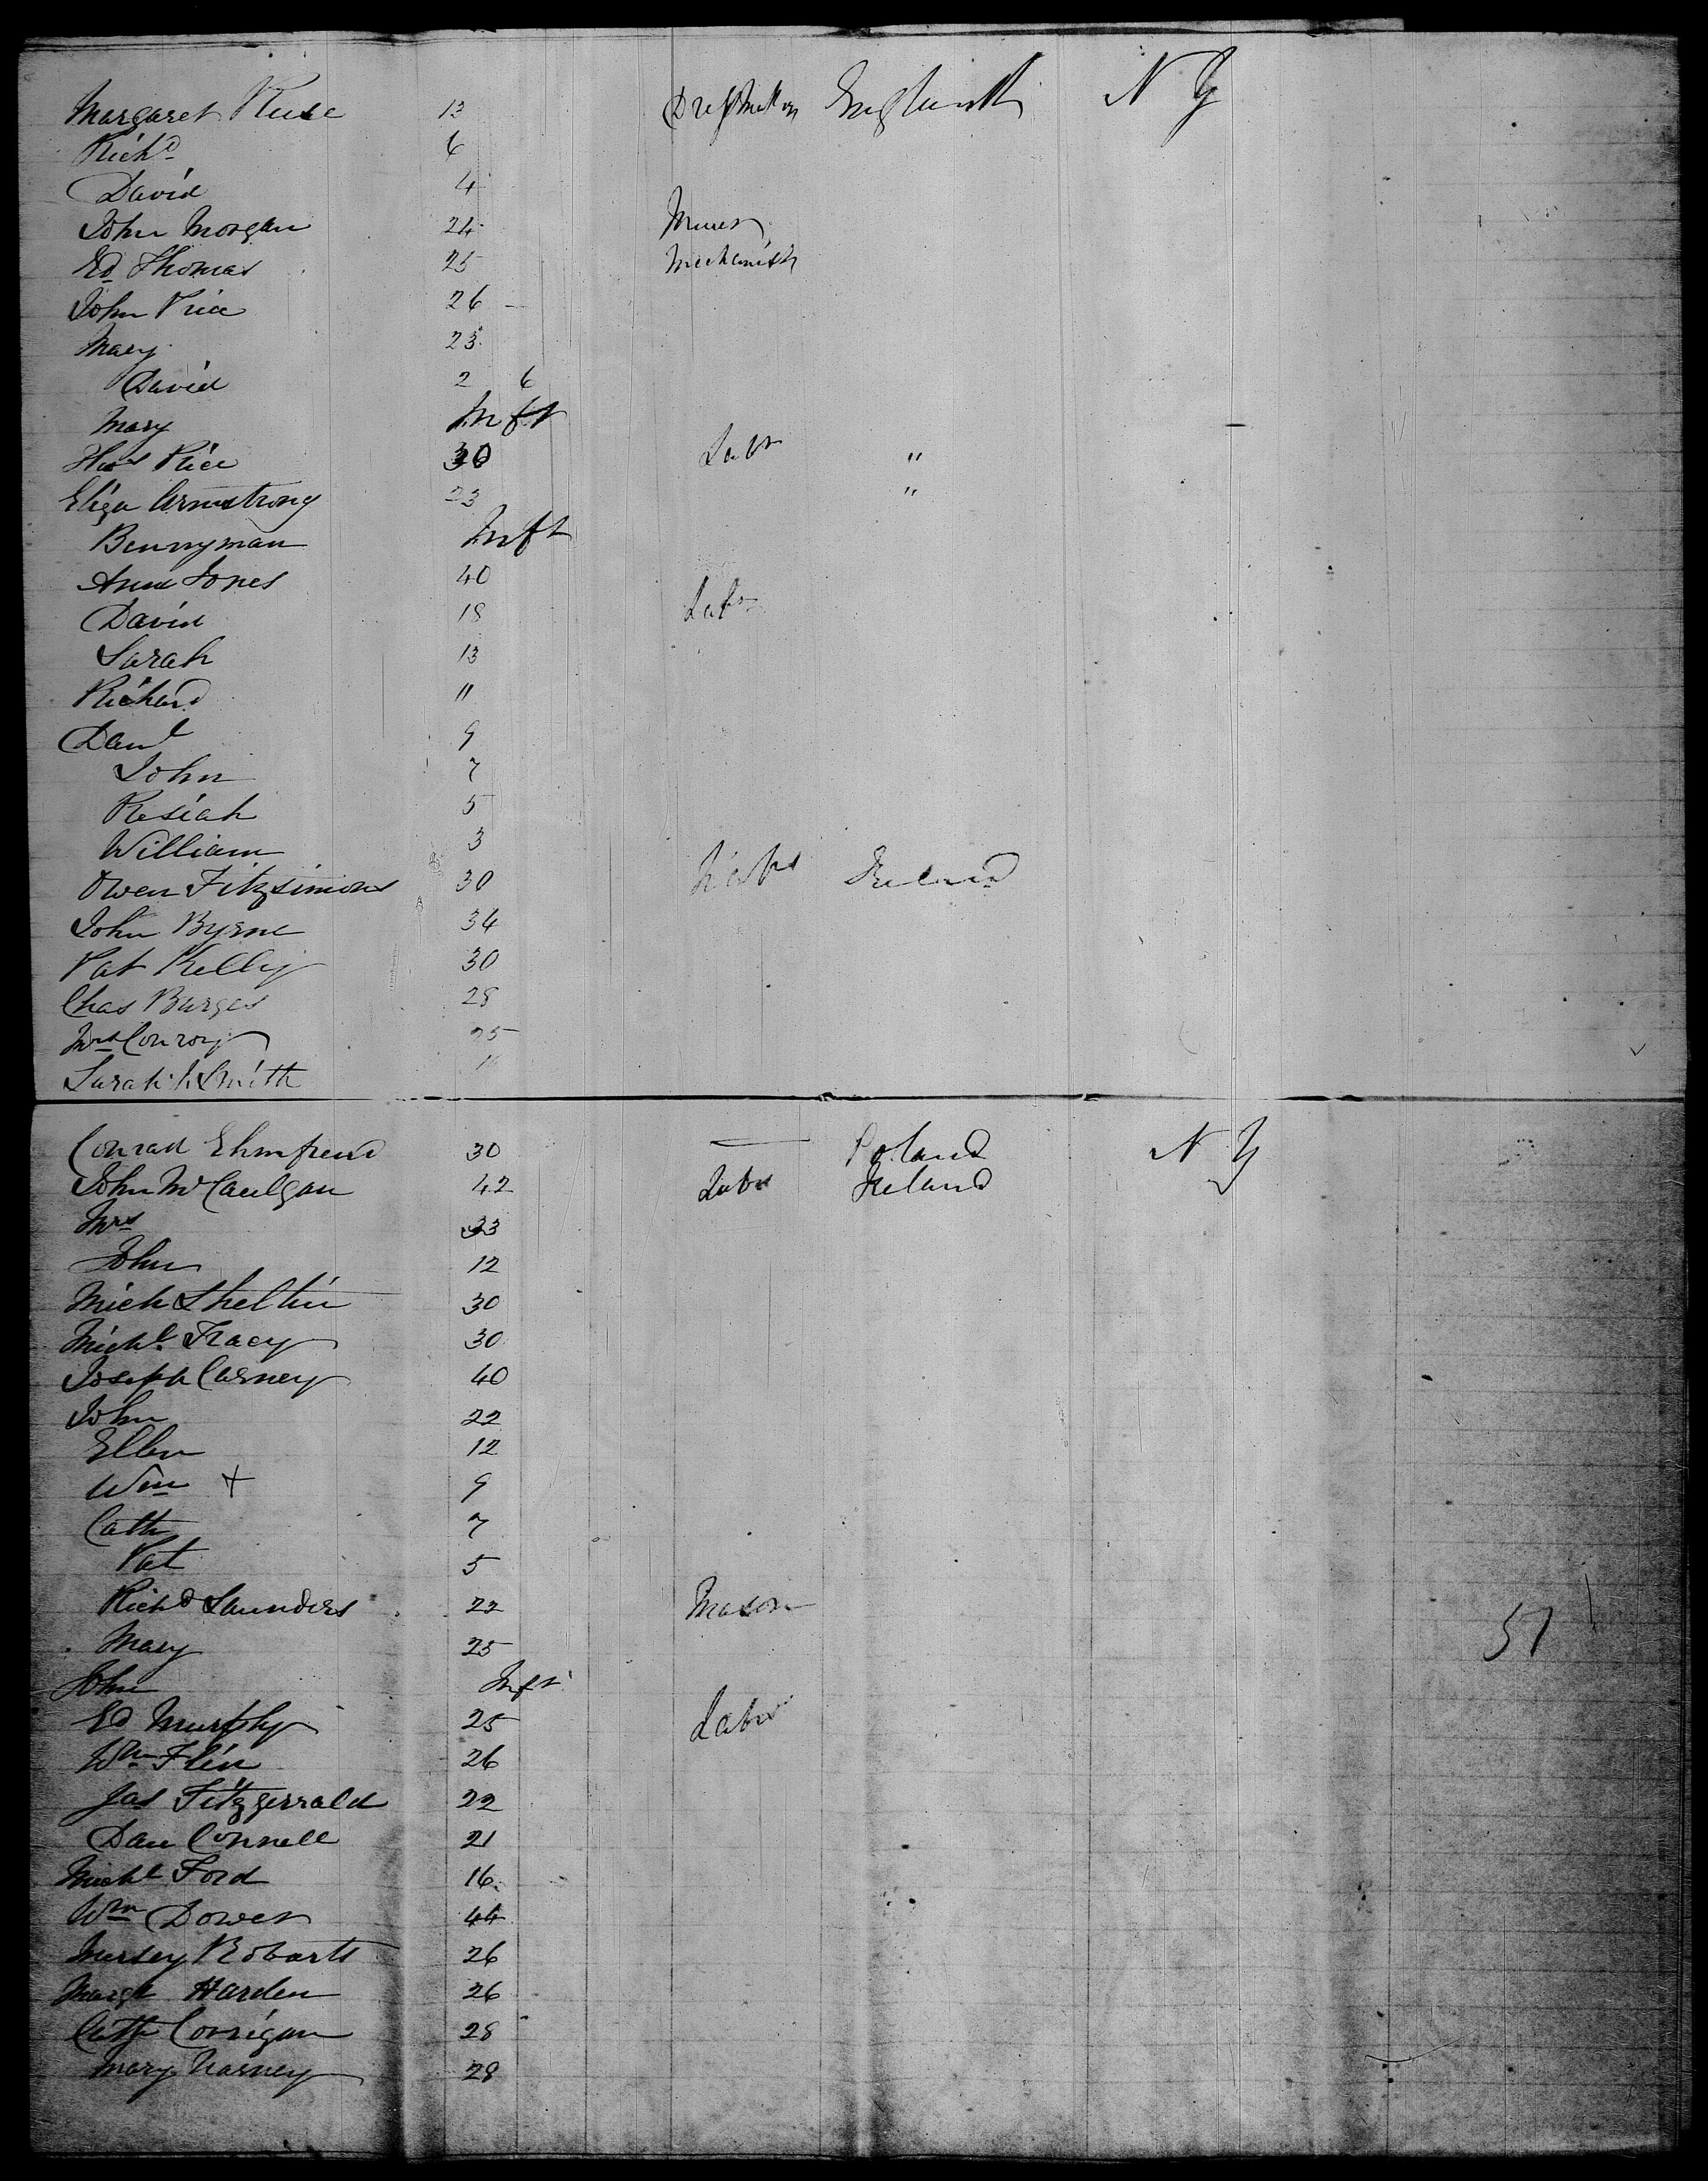 Margaret 13 England N Y
Richd 6
David 4
John Morgan 24 Miner
Ed Thomas 25 Mechanist
John Price 26 —
Mary 23
David 2 6
Mary Inft
Thos Price 30 Labr "
Eliza Armstrong 23 "
Bennyman Inft
Anne Jones 40
David 18 Labr
Sarah 13
Richard 11
Danl 9
John 7
Kesiah 5
William 3
Owen Fitzsimons 30 Ireland
John Byrne 34
Pat Kelly 30
Chas Burges 28
Mrs Conroy 25
Sarah Smith
Conrad 30 — Poland N Y
John McCaulgan 42 Labr Ireland
Mrs 33
John 12
Mich Sheltin 30
Michl Tracy 30
Joseph Carney 40
John 22
Ellen 12
Wm + 9
Cath 7
Pat 5
Richd Saunders 22 Mason
Mary 25 51
John Inft
Ed Murphy 25 Labr
Wm Flin 26
Jas Fitzgerrald 22
Dan Connell 21
Michl Ford 16
Wm Dower 44
Mersey Robarts 26
Margt Harden 26
Cath Corrigan 28
Mary Narney 28